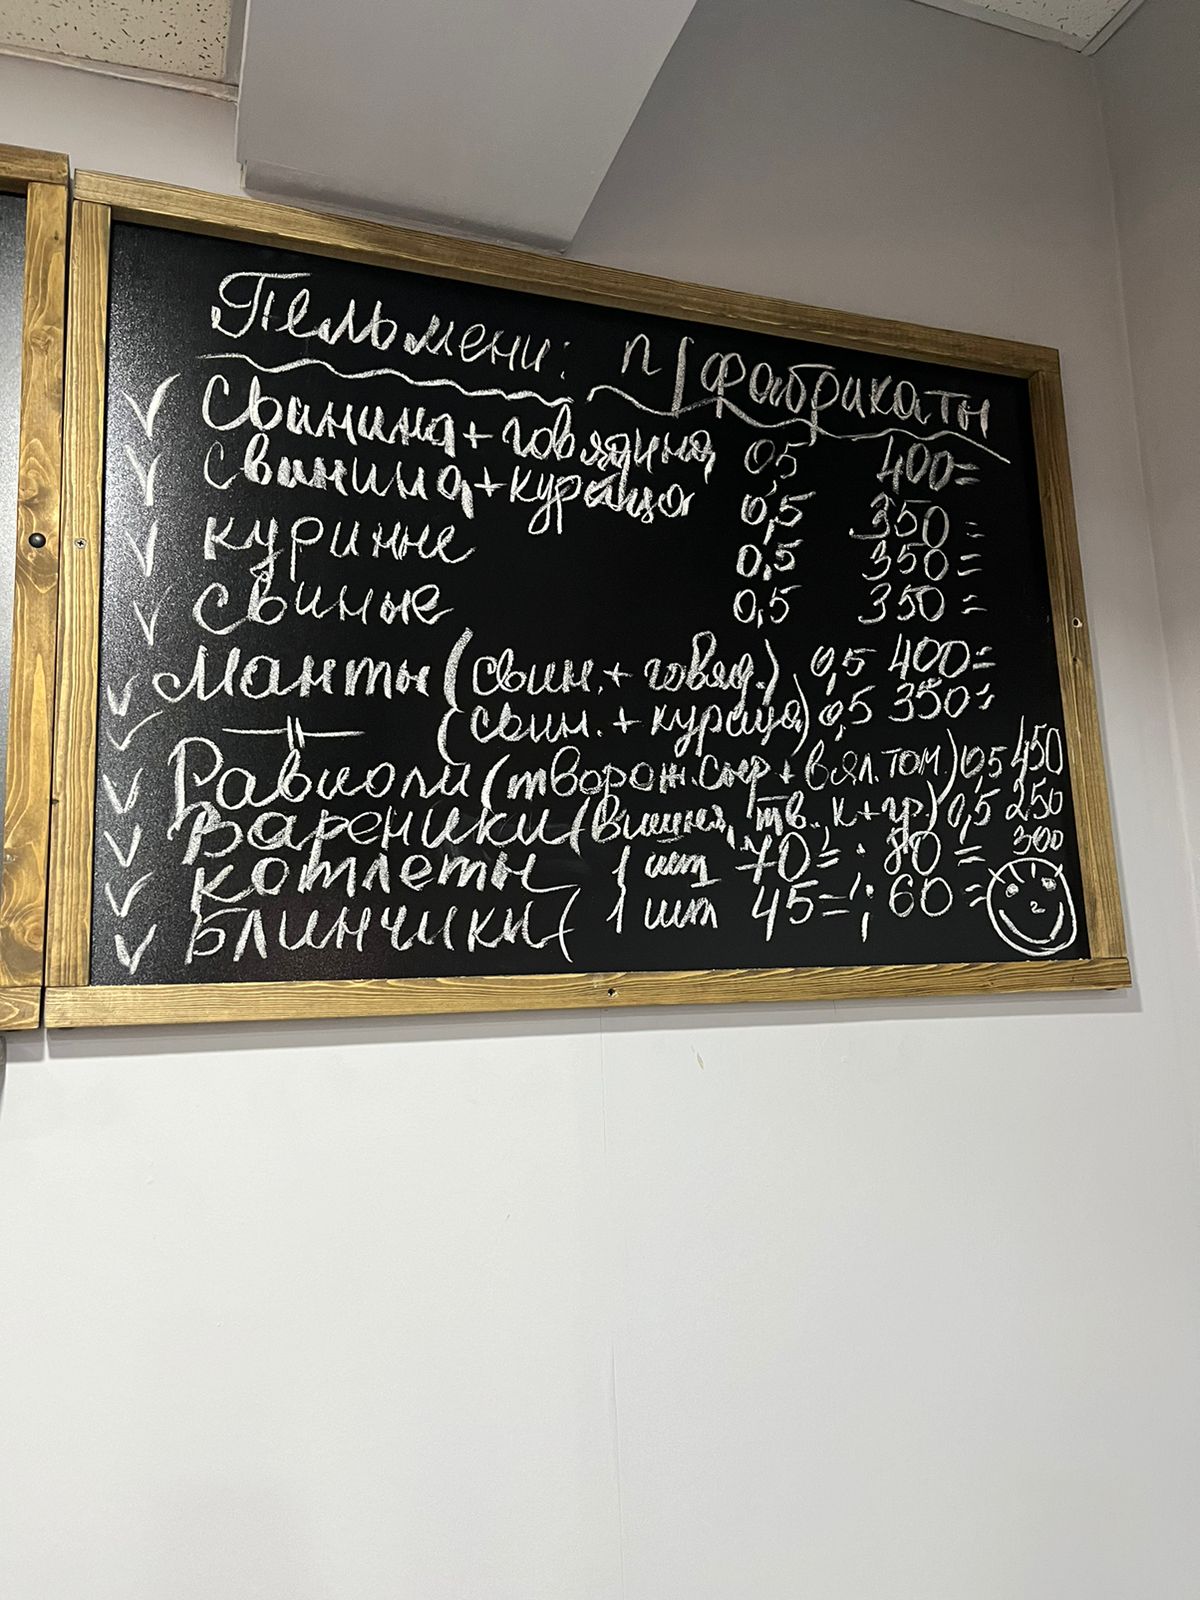 Пельмени: п/фабрикаты
Свинина + говядина 0,5 400=
Свинина + курица 0,5 350=
куриные 0,5 350=
Свиные 0,5 350=
Манты (свин. + говяд.) 0,5 400=
—〃— (свин. + курица) 0,5 350=
Равиоли (творож. сыр + вял. том.) 0,5 450
Вареники (вишня, тв. к + гр) 0,5 250
300
котлеты 1 шт 70=; 80=
Блинчики ( 1 шт 45=; 60=